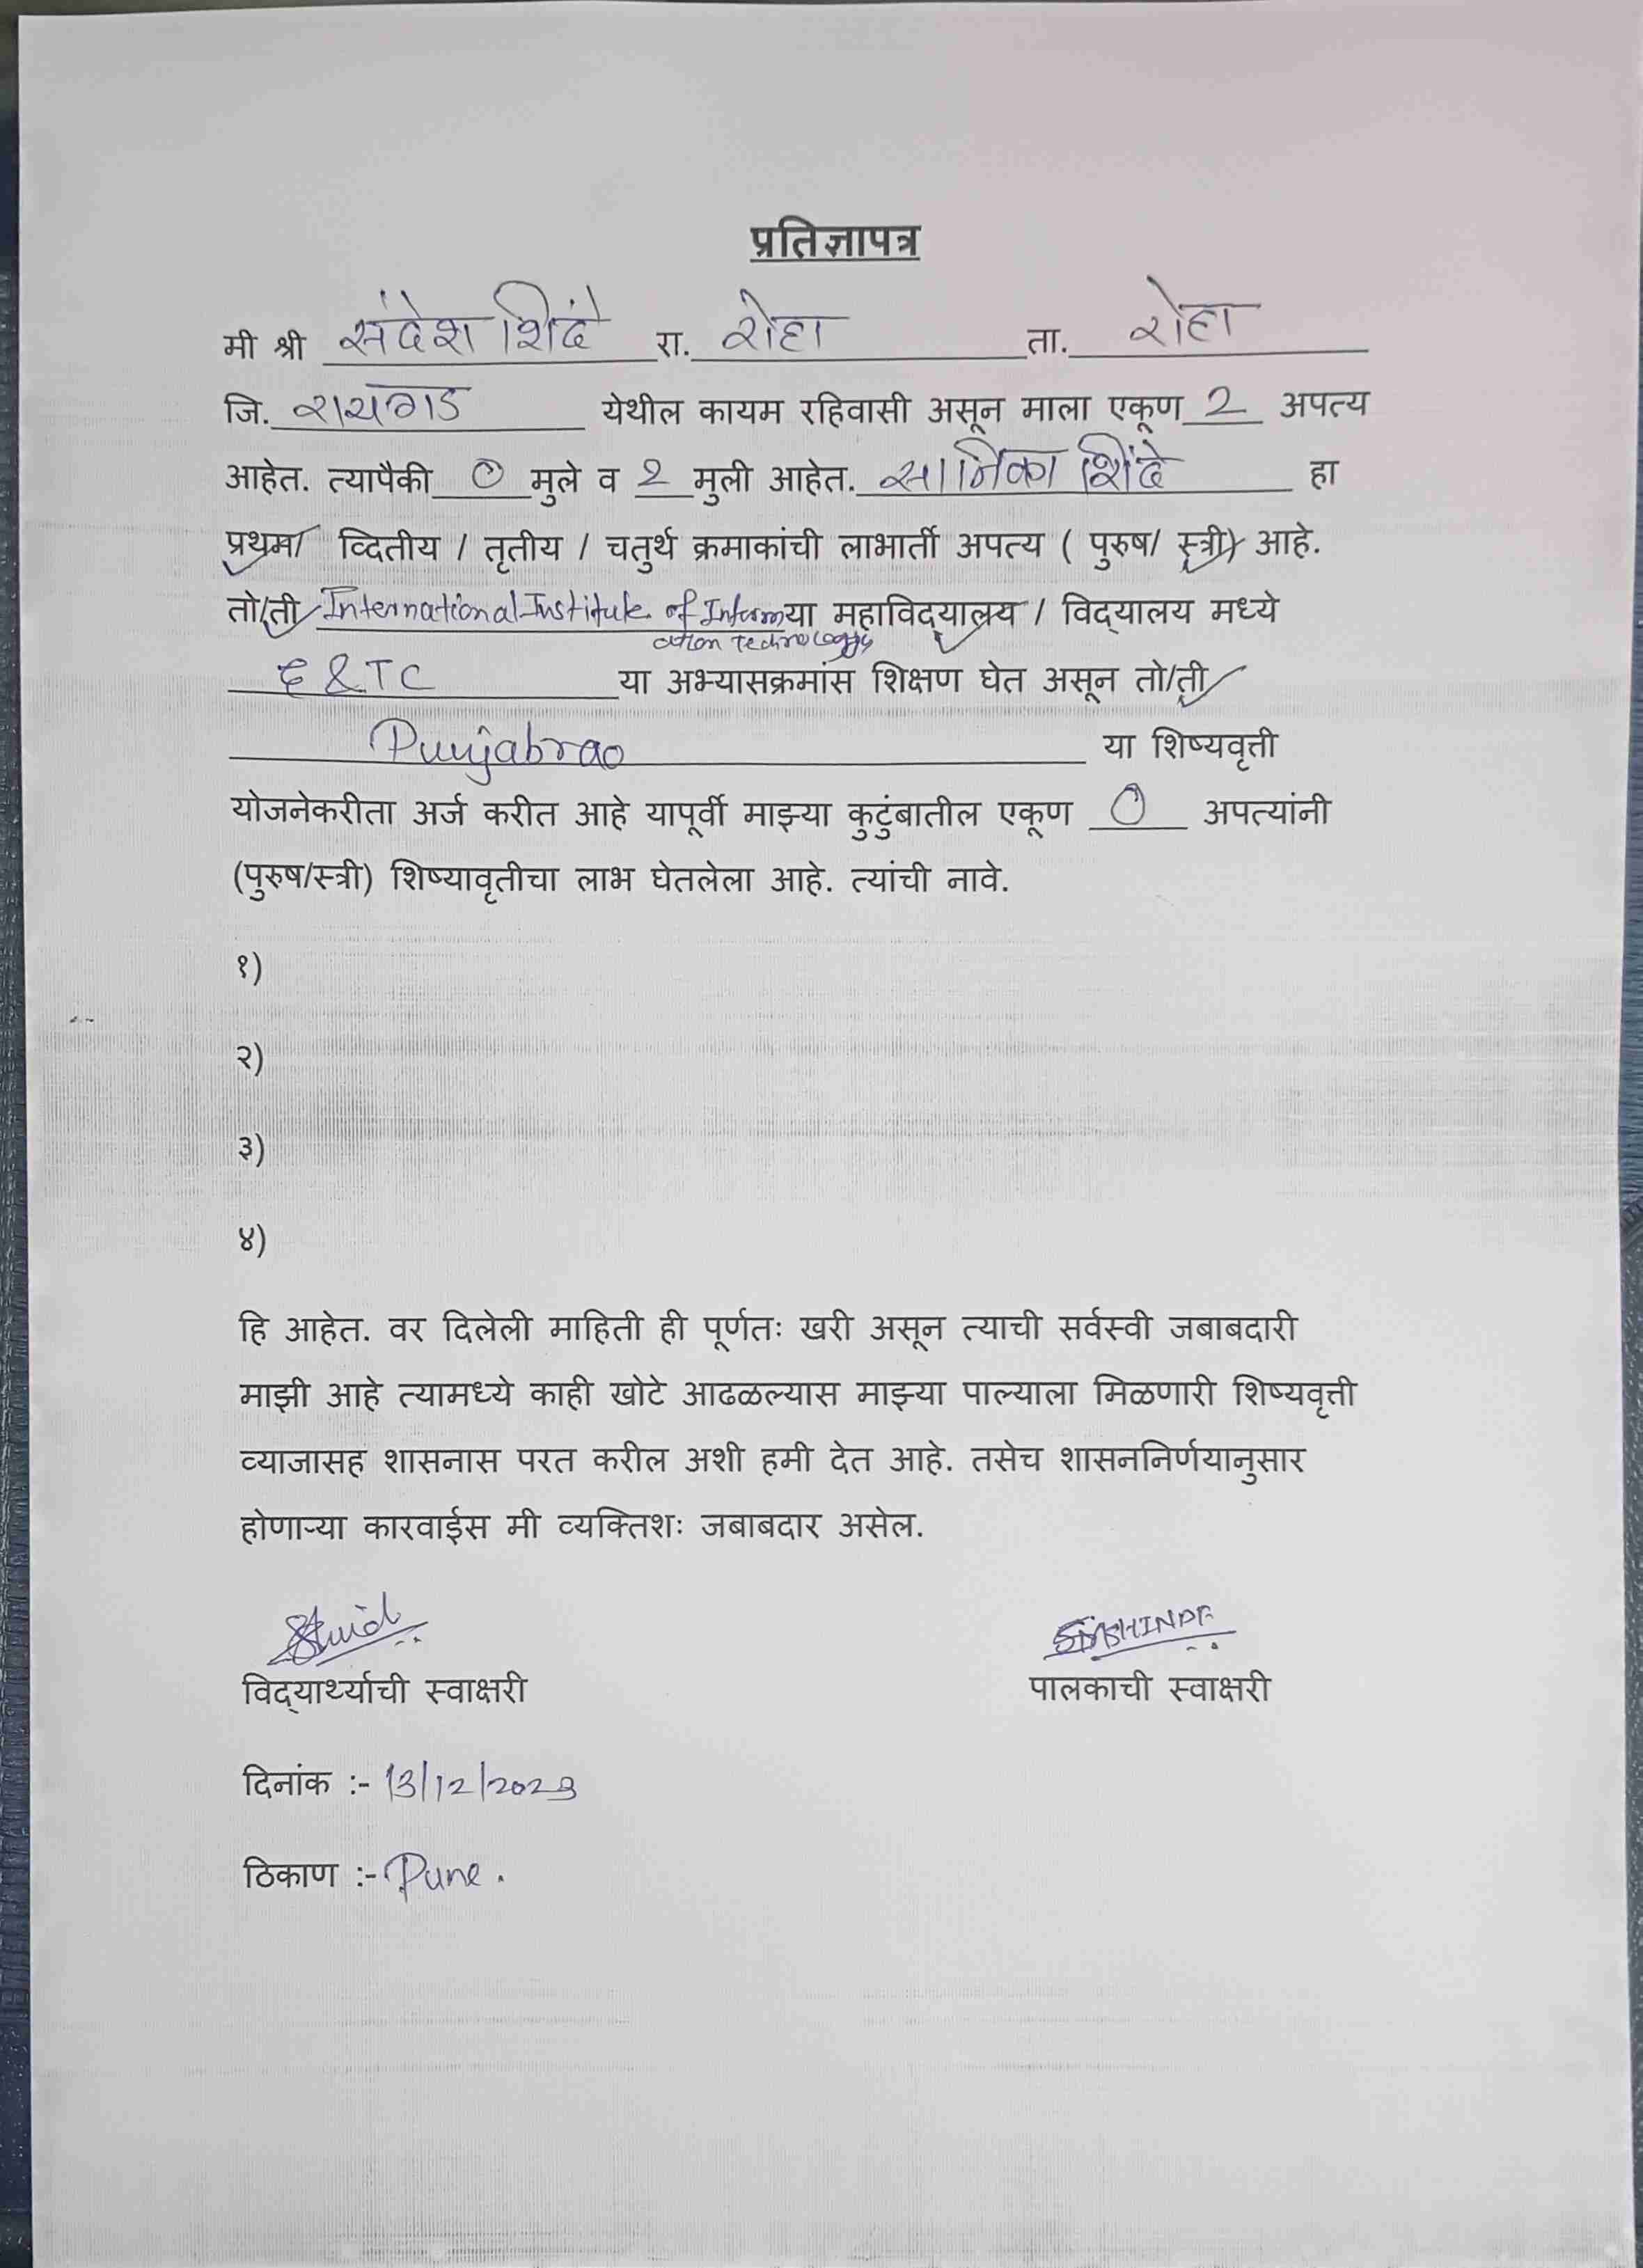 प्रतिज्ञापत्र
मी श्री संदेश शिंदे रा. रोहा ता. रोहा
जि. रायगड येथील कायम रहिवासी असून माला एकूण 2 अपत्य
आहेत. त्यापैकी 0 मुले व 2 मुली आहेत. सानिका शिंदे हा
प्रथम/ व्दितीय / तृतीय / चतुर्थ क्रमाकांची लाभार्ती अपत्य ( पुरुष/ स्त्री) आहे.
तो/ती International Institute of Inform या महाविद्यालय / विद्यालय मध्ये
ation Technology
E & TC या अभ्यासक्रमांस शिक्षण घेत असून तो/ती
Punjabrao या शिष्यवृत्ती
योजनेकरीता अर्ज करीत आहे यापूर्वी माझ्या कुटुंबातील एकूण 0 अपत्यांनी
(पुरुष/स्त्री) शिष्यावृतीचा लाभ घेतलेला आहे. त्यांची नावे.
१)
२)
३)
४)
हि आहेत. वर दिलेली माहिती ही पूर्णतः खरी असून त्याची सर्वस्वी जबाबदारी
माझी आहे त्यामध्ये काही खोटे आढळल्यास माझ्या पाल्याला मिळणारी शिष्यवृत्ती
व्याजासह शासनास परत करील अशी हमी देत आहे. तसेच शासननिर्णयानुसार
होणाऱ्या कारवाईस मी व्यक्तिशः जबाबदार असेल.
विद्यार्थ्याची स्वाक्षरी पालकाची स्वाक्षरी
दिनांक :- 13/12/2023
ठिकाण :- Pune.